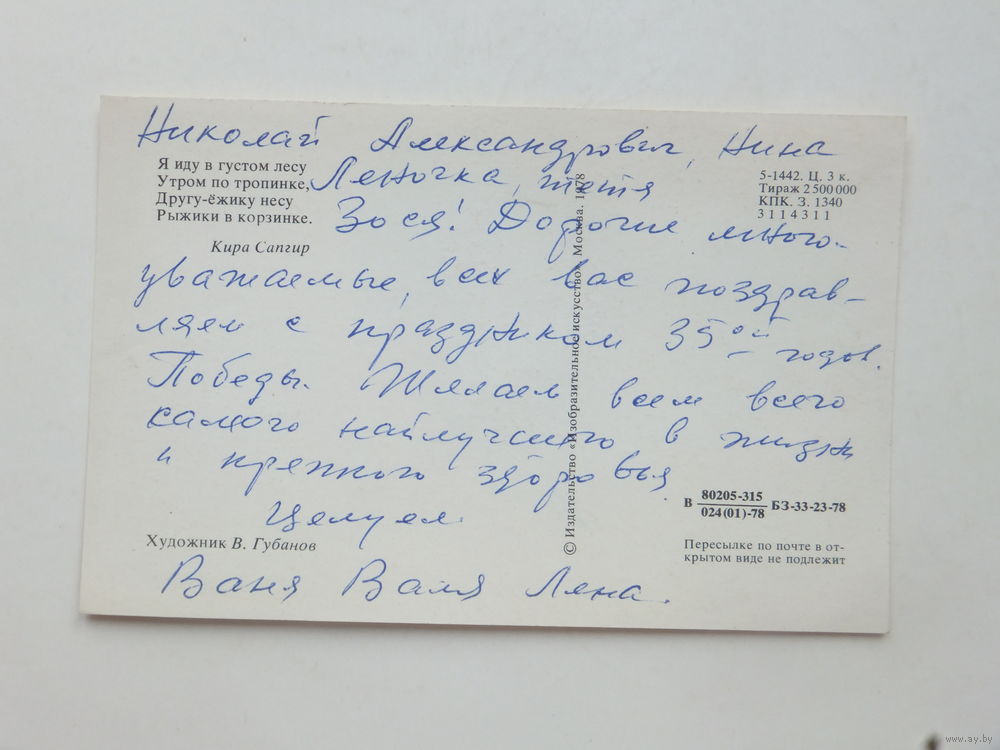 Николай Александрович, Нина
Леночка, тётя
Зося! Дорогие много-
уважаемые, всех вас поздрав-
ляем с праздником 35-ой годов.
Победы. Желаем всем всего
самого найлучшего в жизни
и крепкого здоровья
Целуем
Ваня Валя Лена.
Я иду в густом лесу
Утром по тропинке,
Другу-ёжику несу
Рыжики в корзинке.
Кира Сапгир
Художник В. Губанов
© Издательство «Изобразительное искусство». Москва. 1978
5-1442. Ц. 3 к.
Тираж 2 500 000
КПК. З. 1340
3 1 1 4 3 1 1
В 80205-315
024(01)-78 БЗ-33-23-78
Пересылке по почте в от-
крытом виде не подлежит
www.ay.by